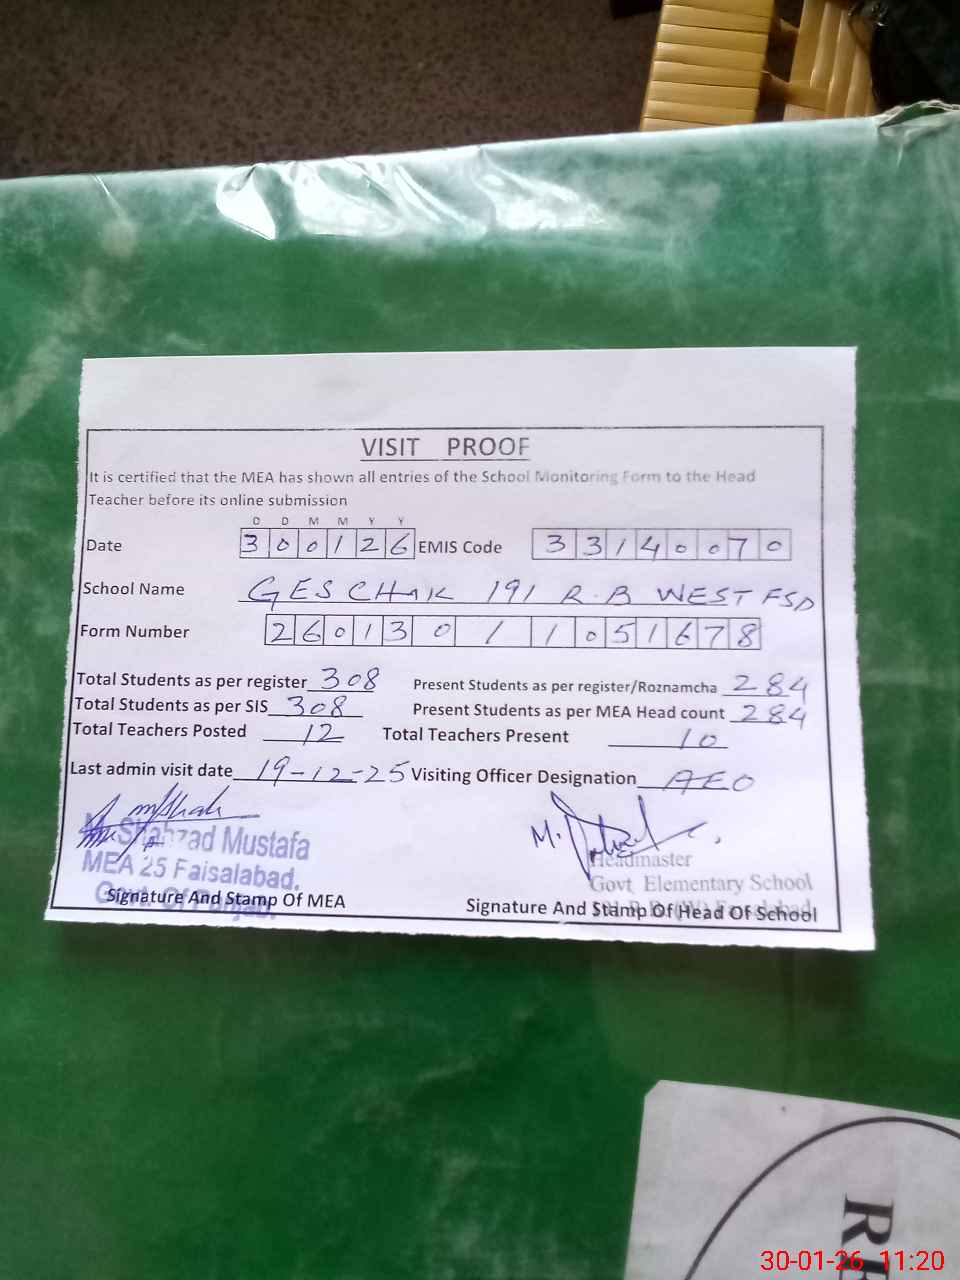 VISIT PROOF
It is certified that the MEA has shown all entries of the School Monitoring Form to the Head
Teacher before its online submission
D D M M Y Y
Date 300126 EMIS Code 33140070
School Name GES CHAK 191 R.B WEST FSD
Form Number 260130/1051678
Total Students as per register 308 Present Students as per register/Roznamcha 284
Total Students as per SIS 308 Present Students as per MEA Head count 284
Total Teachers Posted 12 Total Teachers Present 10
Last admin visit date 19-12-25 Visiting Officer Designation AEO
Shahzad Mustafa
MEA 25 Faisalabad.
Govt. Of Punjab.
Signature And Stamp Of MEA
Headmaster
Govt Elementary School
Signature And Stamp Of Head Of School
30-01-26 11:20